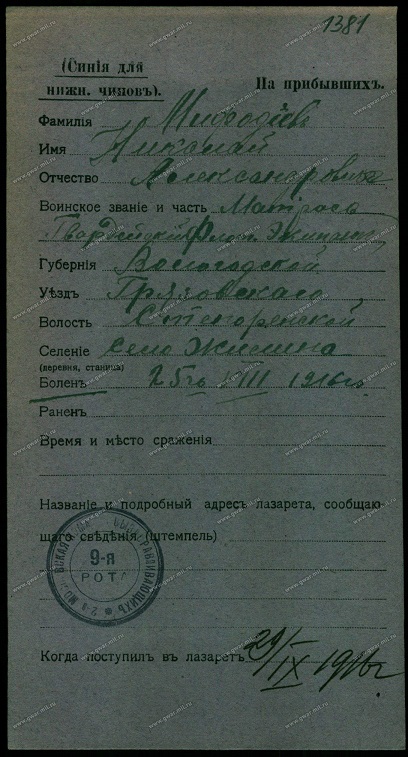 1381
(Синія для
нижн. чиновъ).
На прибывшихъ.
Фамилія Мефодіевъ
Имя Николай
Отчество Александровичъ
Воинское званіе и часть Матросъ
Гвардейскій Флот. Экипажъ
Губернія Вологодской
Уѣздъ Грязовскаго
Волость
Селеніе Село Жилина
(деревня, станица)
Боленъ 25го VIII 1916го
Раненъ
Время и мѣсто сраженія
Названіе и подробный адресъ лазарета, сообщаю-
щаго свѣдѣнія (штемпель)
9-я
РОТА
ВЫЗДОРАВЛИВАЮЩИХЪ
Когда поступилъ въ лазаретъ 29/IX 1916г
www.gwar.mil.ru